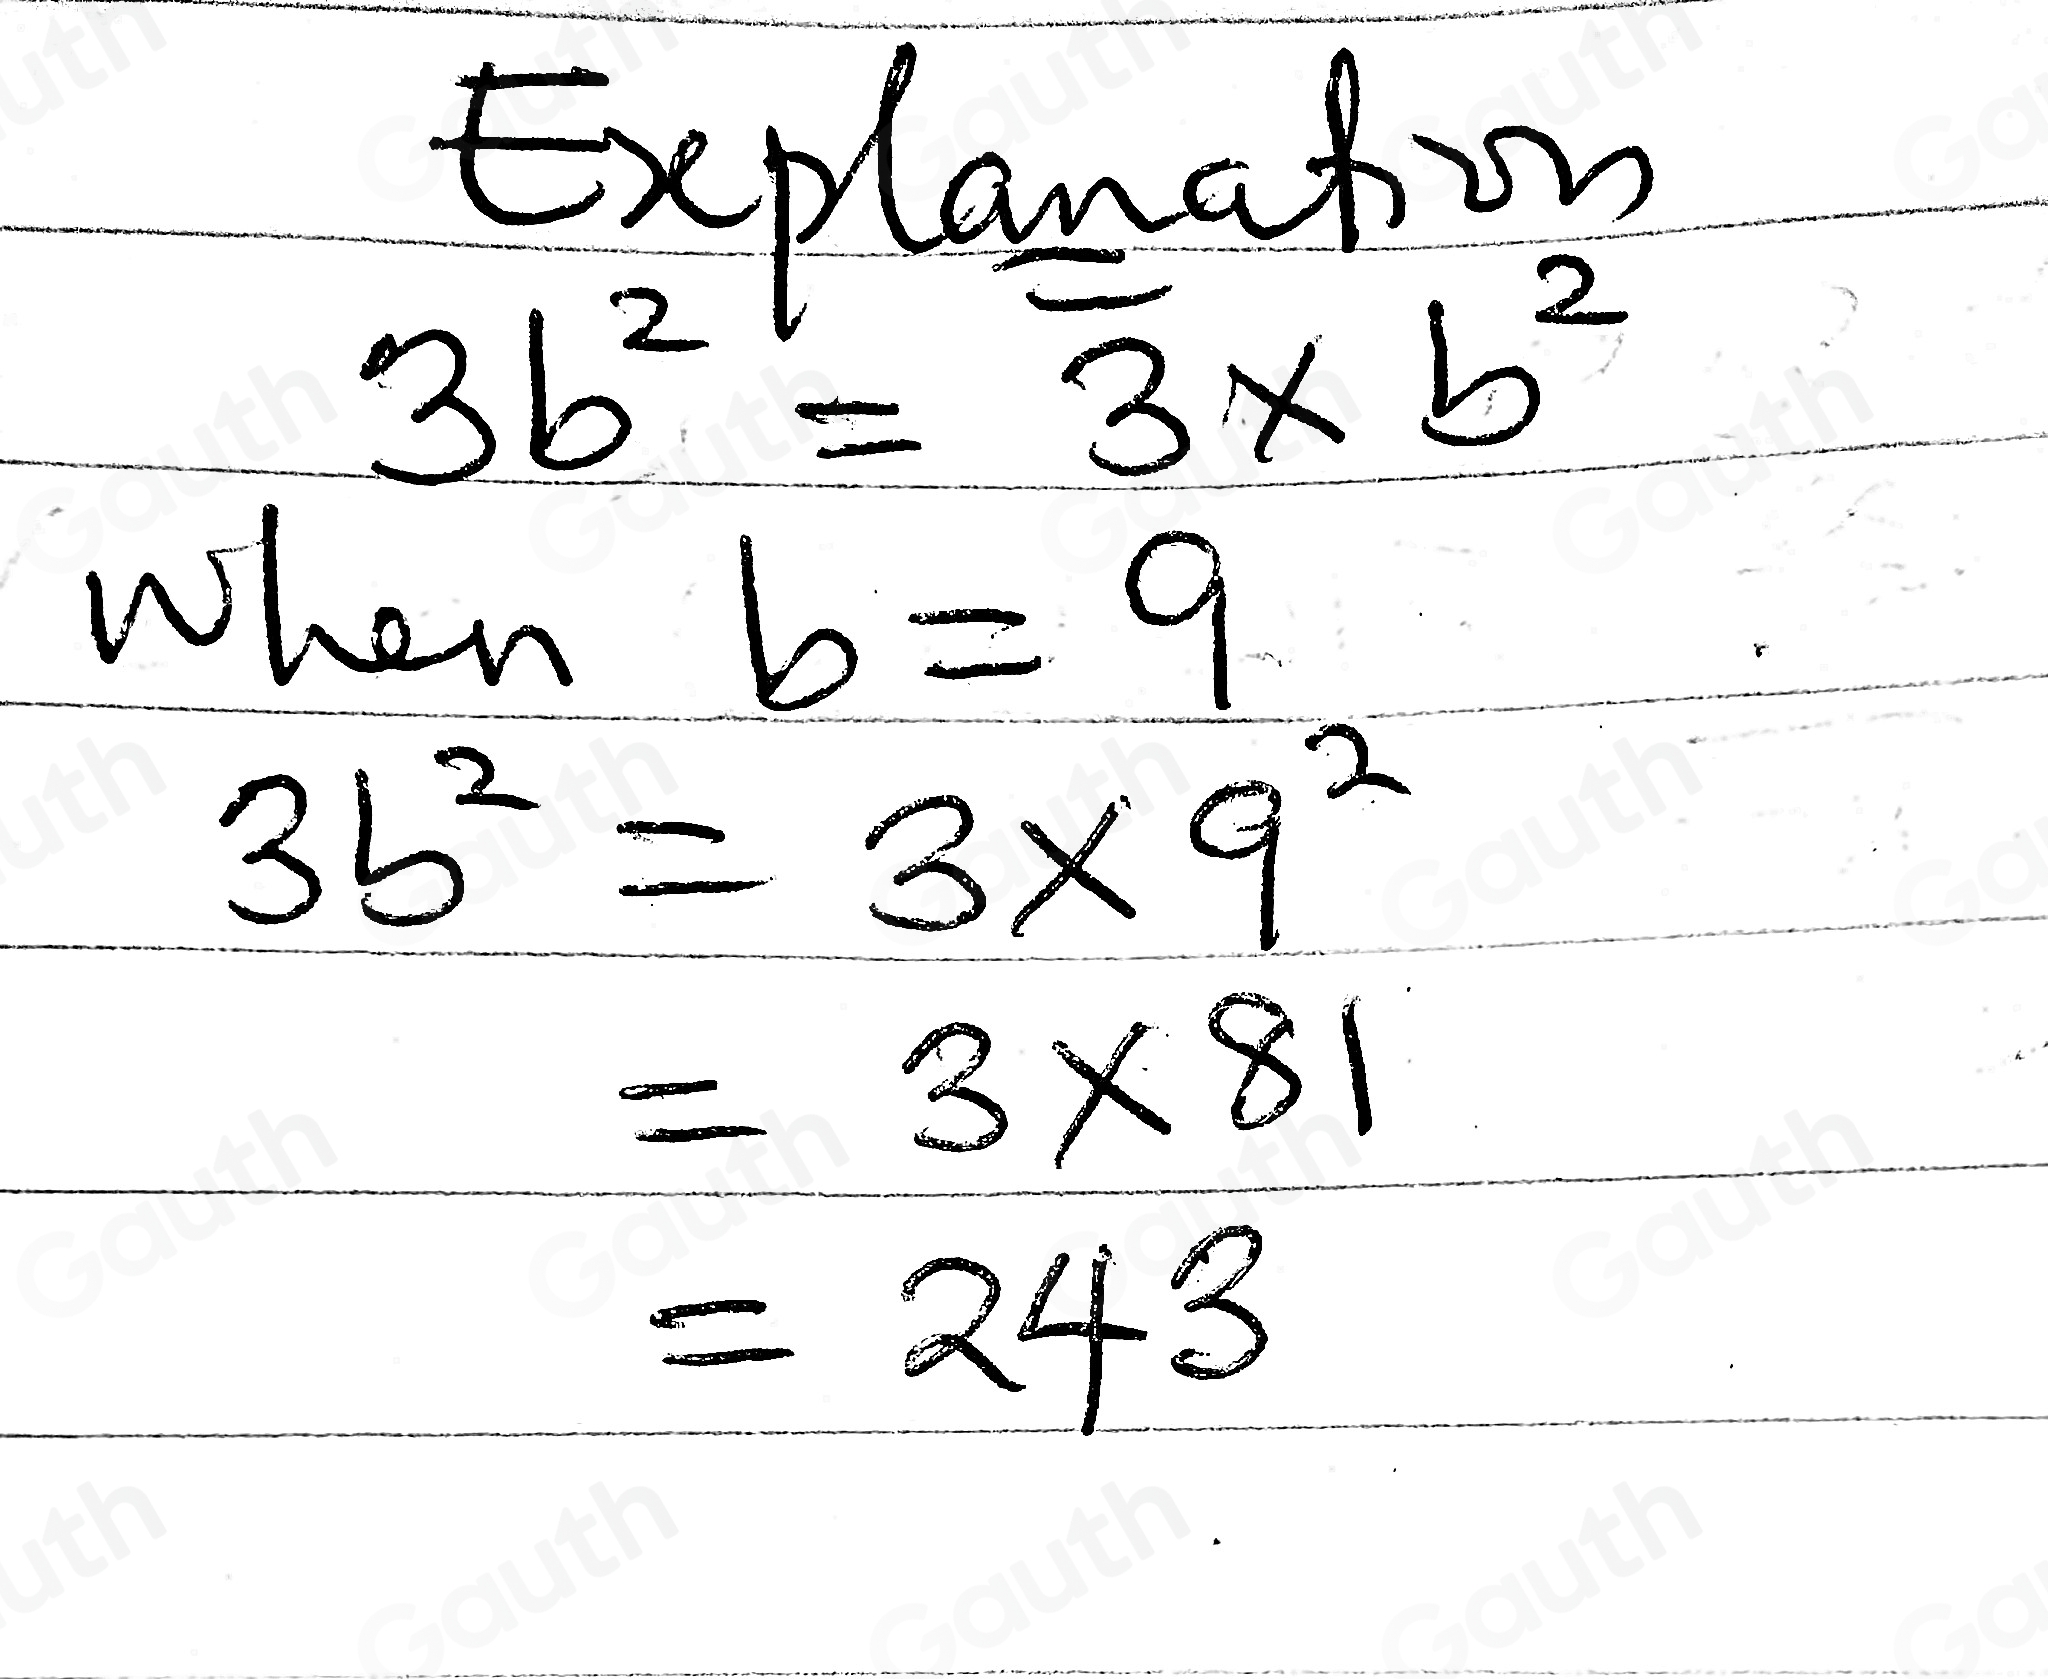 Explanation
3b² = 3 × b²
when b = 9
3b² = 3 × 9²
= 3 × 81
= 243